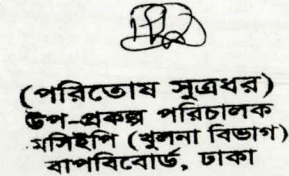 (পরিতোষ সূত্রধর)
উপ-প্রকল্প পরিচালক
মসিইপি (খুলনা বিভাগ)
বাপবিবোর্ড, ঢাকা